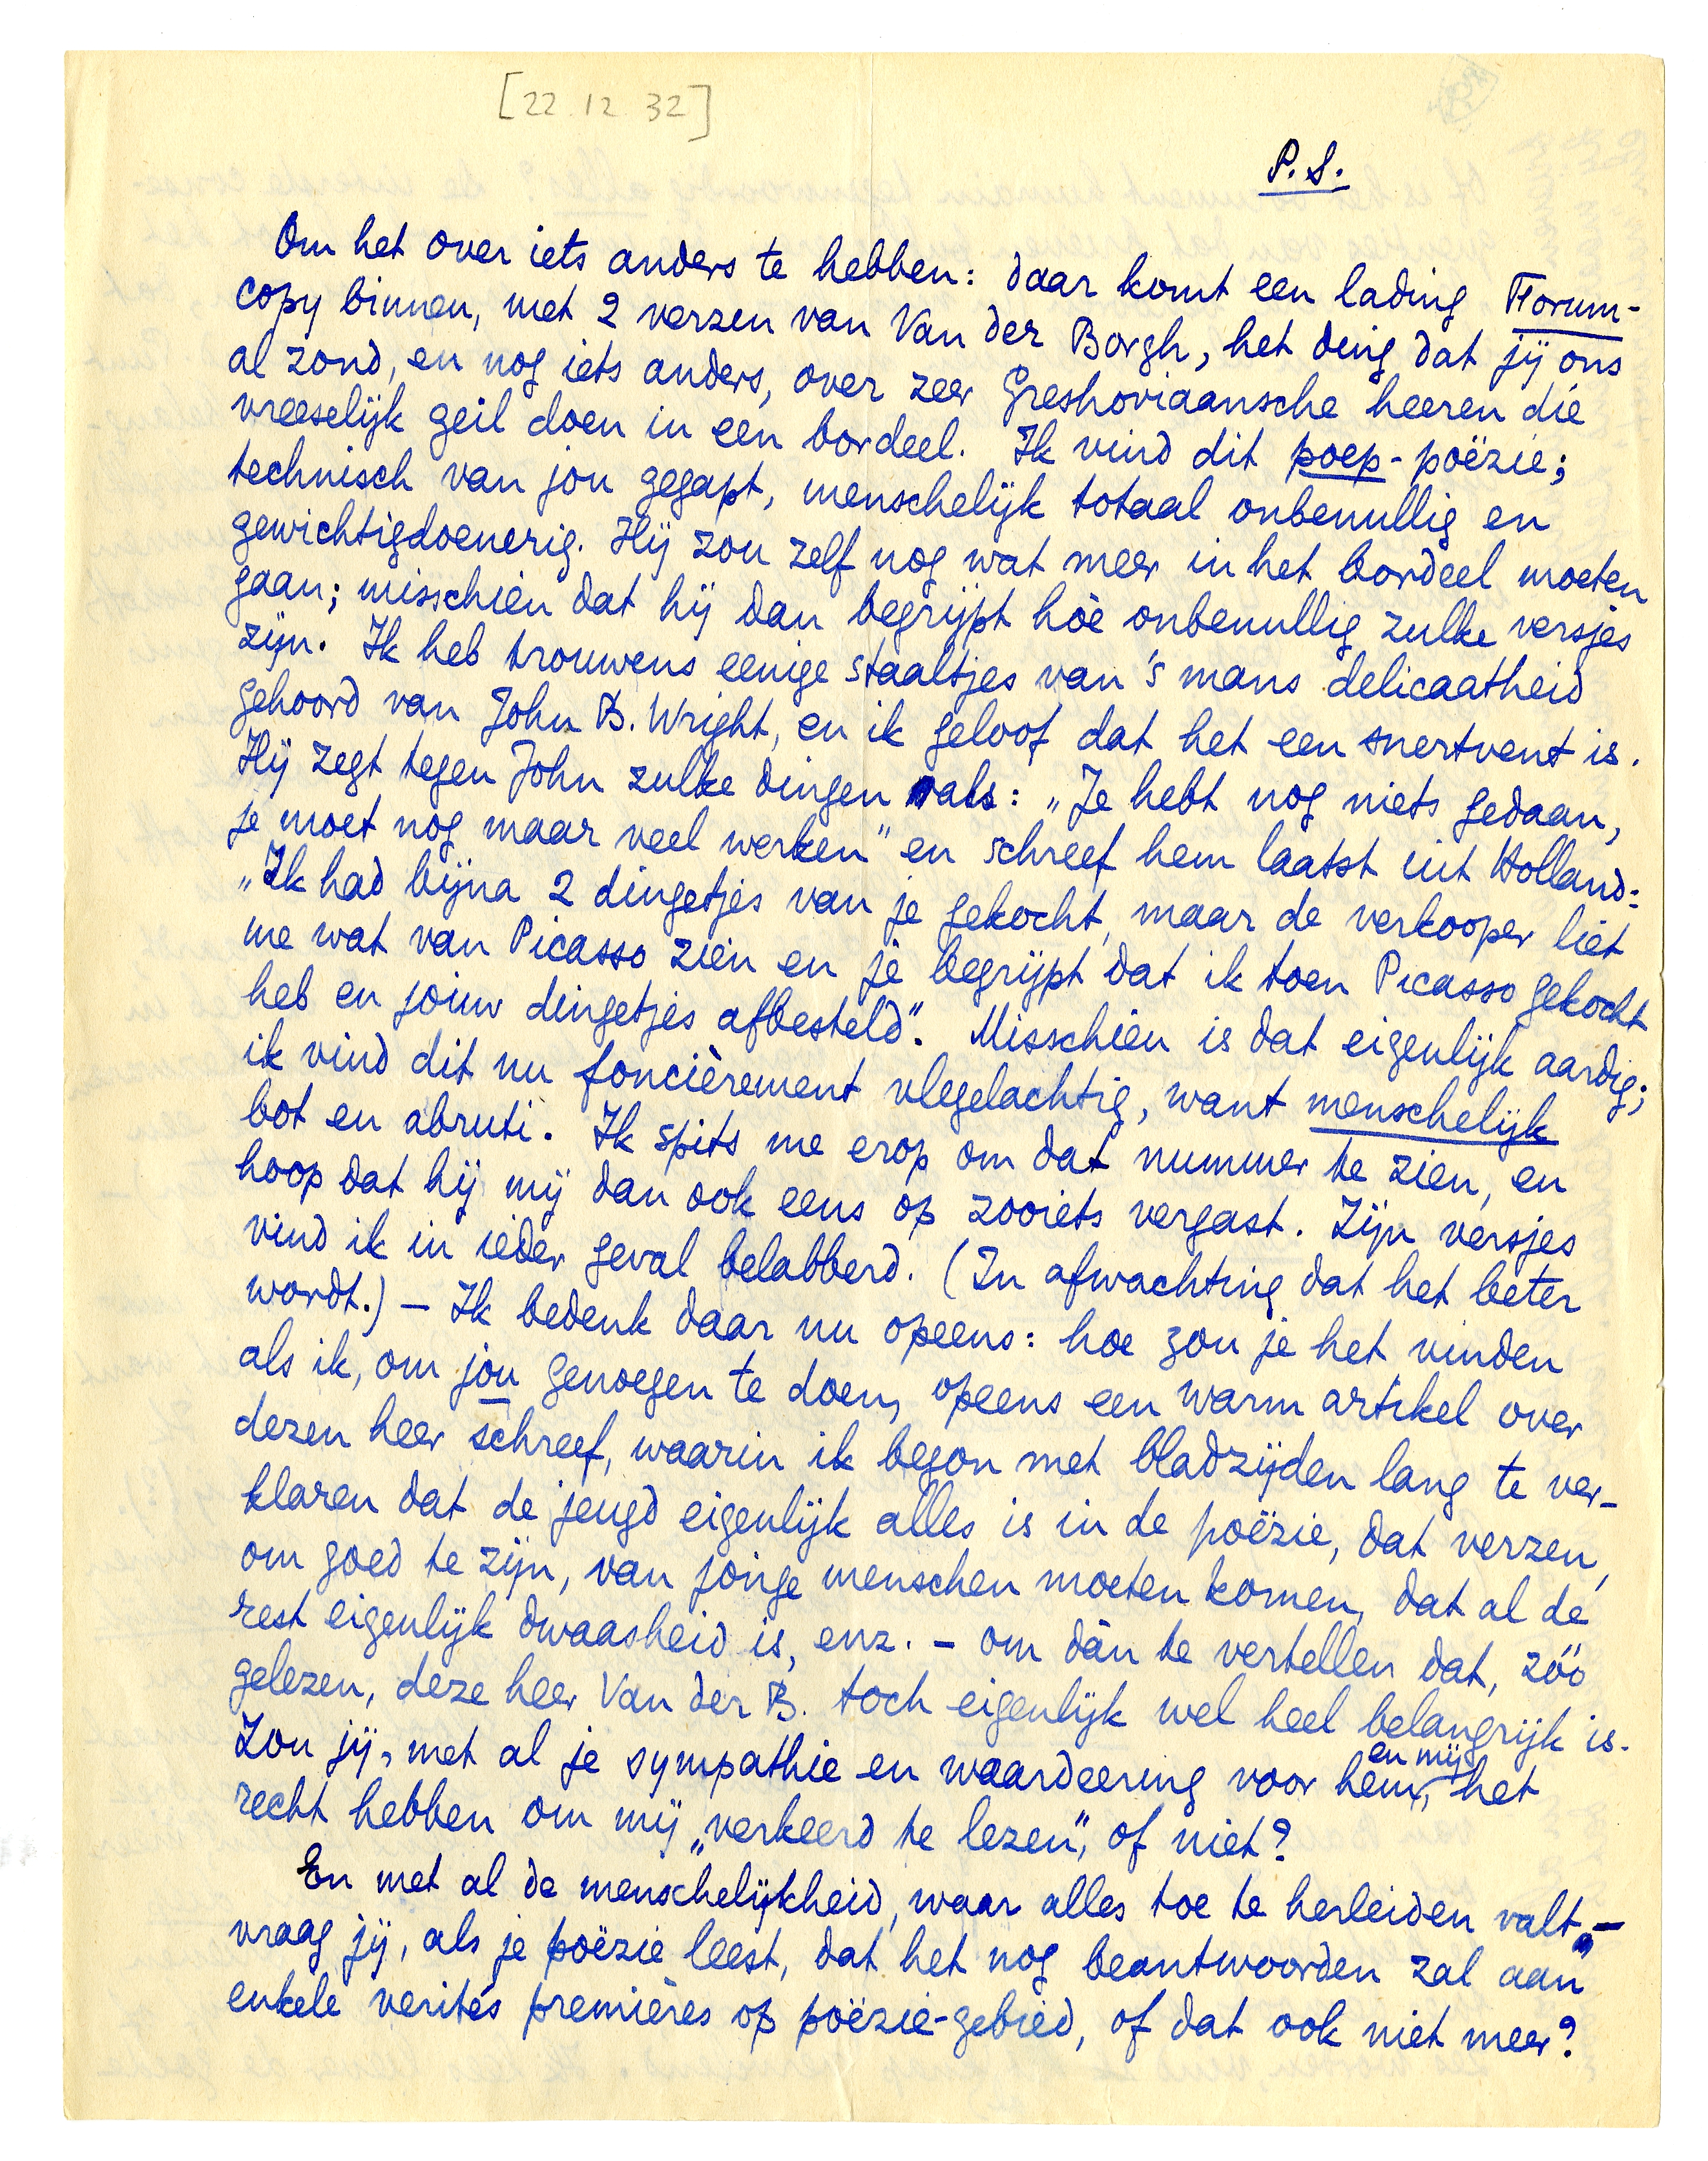 [22.12 32]
P.S.
Om het over iets anders te hebben: daar komt een lading Forum-
copy binnen, met 2 verzen van Van der Borgh, het ding dat jij ons
al zond, en nog iets anders, over zeer Greshoviaansche heeren die
vreeselijk geil doen in een bordeel. Ik vind dit poep-poëzie;
technisch van jou gegapt, menschelijk totaal onbenullig en
gewichtigdoenerig. Hij zou zelf nog wat meer in het bordeel moeten
gaan; misschien dat hij dan begrijpt hòe onbenullig zulke versjes
zijn. Ik heb trouwens eenige staaltjes van 's mans delicaatheid
gehoord van John B. Wright, en ik geloof dat het een snertvent is.
Hij zegt tegen John zulke dingen als: „Je hebt nog niets gedaan,
je moet nog maar veel werken" en schreef hem laatst uit Holland:
„Ik had bijna 2 dingetjes van je gekocht, maar de verkooper liet
me wat van Picasso zien en je begrijpt dat ik toen Picasso gekocht
heb en jouw dingetjes afbesteld". Misschien is dat eigenlijk aardig;
ik vind dit nu foncièrement vlegelachtig, want menschelijk
bot en abruti. Ik spits me erop om dat nummer te zien, en
hoop dat hij mij dan ook eens op zooiets vergast. Zijn versjes
vind ik in ieder geval belabberd. (In afwachting dat het beter
wordt.) – Ik bedenk daar nu opeens: hoe zou je het vinden
als ik, om jou genoegen te doen, opeens een warm artikel over
dezen heer schreef, waarin ik begon met bladzijden lang te ver-
klaren dat de jeugd eigenlijk alles is in de poëzie, dat verzen,
om goed te zijn, van jonge menschen moeten komen, dat al de
rest eigenlijk dwaasheid is, enz. – om dàn te vertellen dat, zóó
gelezen, deze heer Van der B. toch eigenlijk wel heel belangrijk is.
Zou jij, met al je sympathie en waardeering voor hem en mij, het
recht hebben om mij „verkeerd te lezen", of niet?
En met al de menschelijkheid, waar alles toe te herleiden valt, –
vraag jij, als je poëzie leest, dat het nog beantwoorden zal aan
enkele verités premières op poëzie-gebied, of dat ook niet meer?